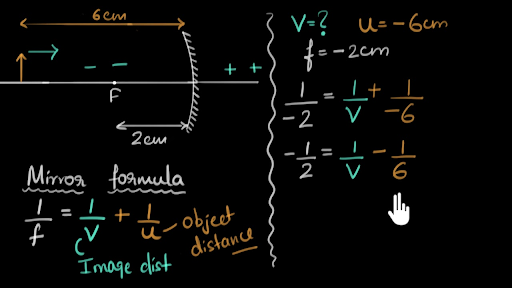 6cm
- -
+ +
F
2cm
Mirror formula
1/f = 1/V + 1/u
Object distance
Image dist
V=? u=-6cm
f=-2cm
1/-2 = 1/V + 1/-6
-1/2 = 1/V - 1/6